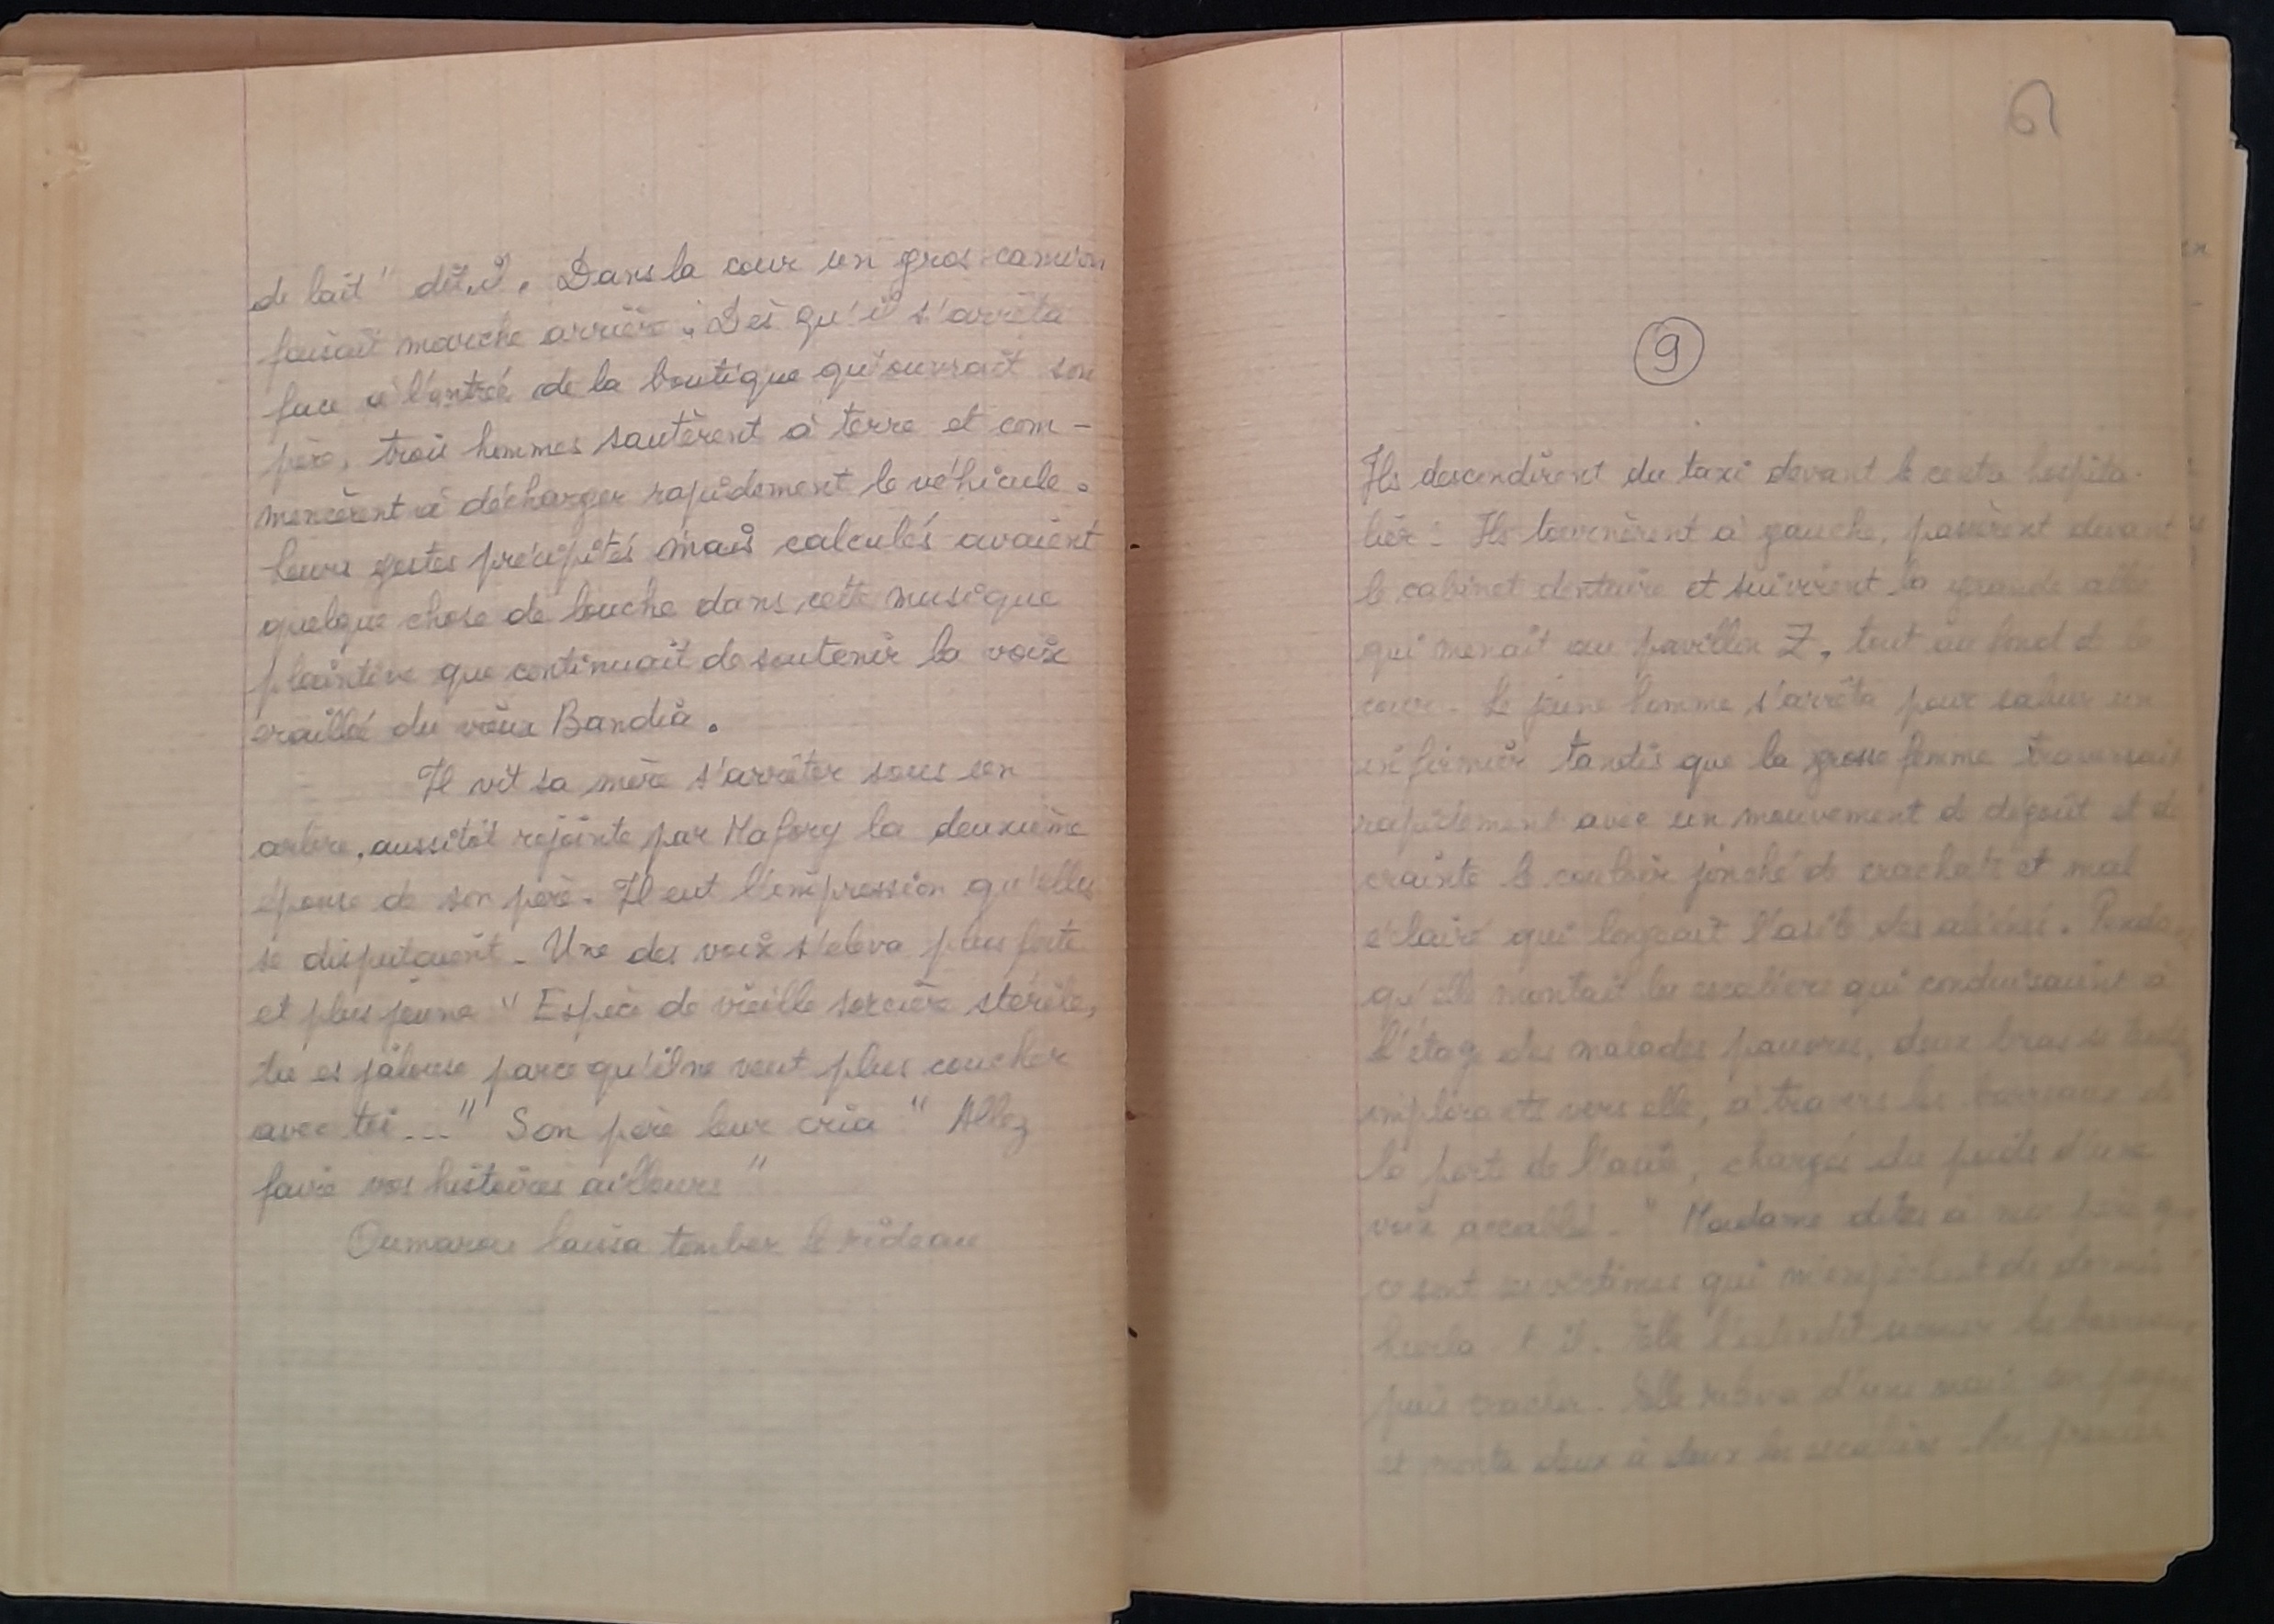 de lait" dit-il. Dans la cour un gros camion
faisait marche arrière. Dès qu'il s'arrêta
face à l'entrée de la boutique qu'ouvrait son
père, trois hommes sautèrent à terre et com-
mencèrent à décharger rapidement le véhicule.
Leurs gestes précipités mais calculés avaient
quelque chose de louche dans cette musique
plaintive que continuait de soutenir la voix
eraillée du vieux Bandia.
Il vit sa mère s'arrêter sous un
arbre, aussitôt rejointe par Mafory la deuxième
épouse de son père. Il eut l'impression qu'elles
se disputaient. Une des voix s'eleva plus forte
et plus jeune "Espèce de vieille sorcière stérile,
tu es jalouse parce qu'il ne veut plus coucher
avec toi..." Son père leur cria "Allez
faire vos histoires ailleurs"
Oumarou laissa tomber le rideau
61
9
Ils descendirent du taxi devant le centre hospita-
lier. Ils tournèrent à gauche, passèrent devant
le cabinet dentaire et suivirent la grande allée
qui menait au pavillon Z, tout au fond de la
cour. Le jeune homme s'arrêta pour saluer un
infirmier tandis que la grosse femme traversait
rapidement avec un mouvement de dégoût et de
crainte le couloir jonché de crachats et mal
éclairé qui longeait l'asile des aliénés. Pendant
qu'elle montait les escaliers qui conduisaient à
l'étage des malades pauvres, deux bras se
implorants vers elle, à travers les barreaux de
la porte de l'asile, chargés du poids d'une
voix accablée. "Madame dites à mon père que
ce sont ses victimes qui m'empêchent de dormir"
hurla-t-il. Elle l'entendit secouer les barreaux
puis cracher. Elle releva d'une main son pagne
et monta deux à deux les escaliers.